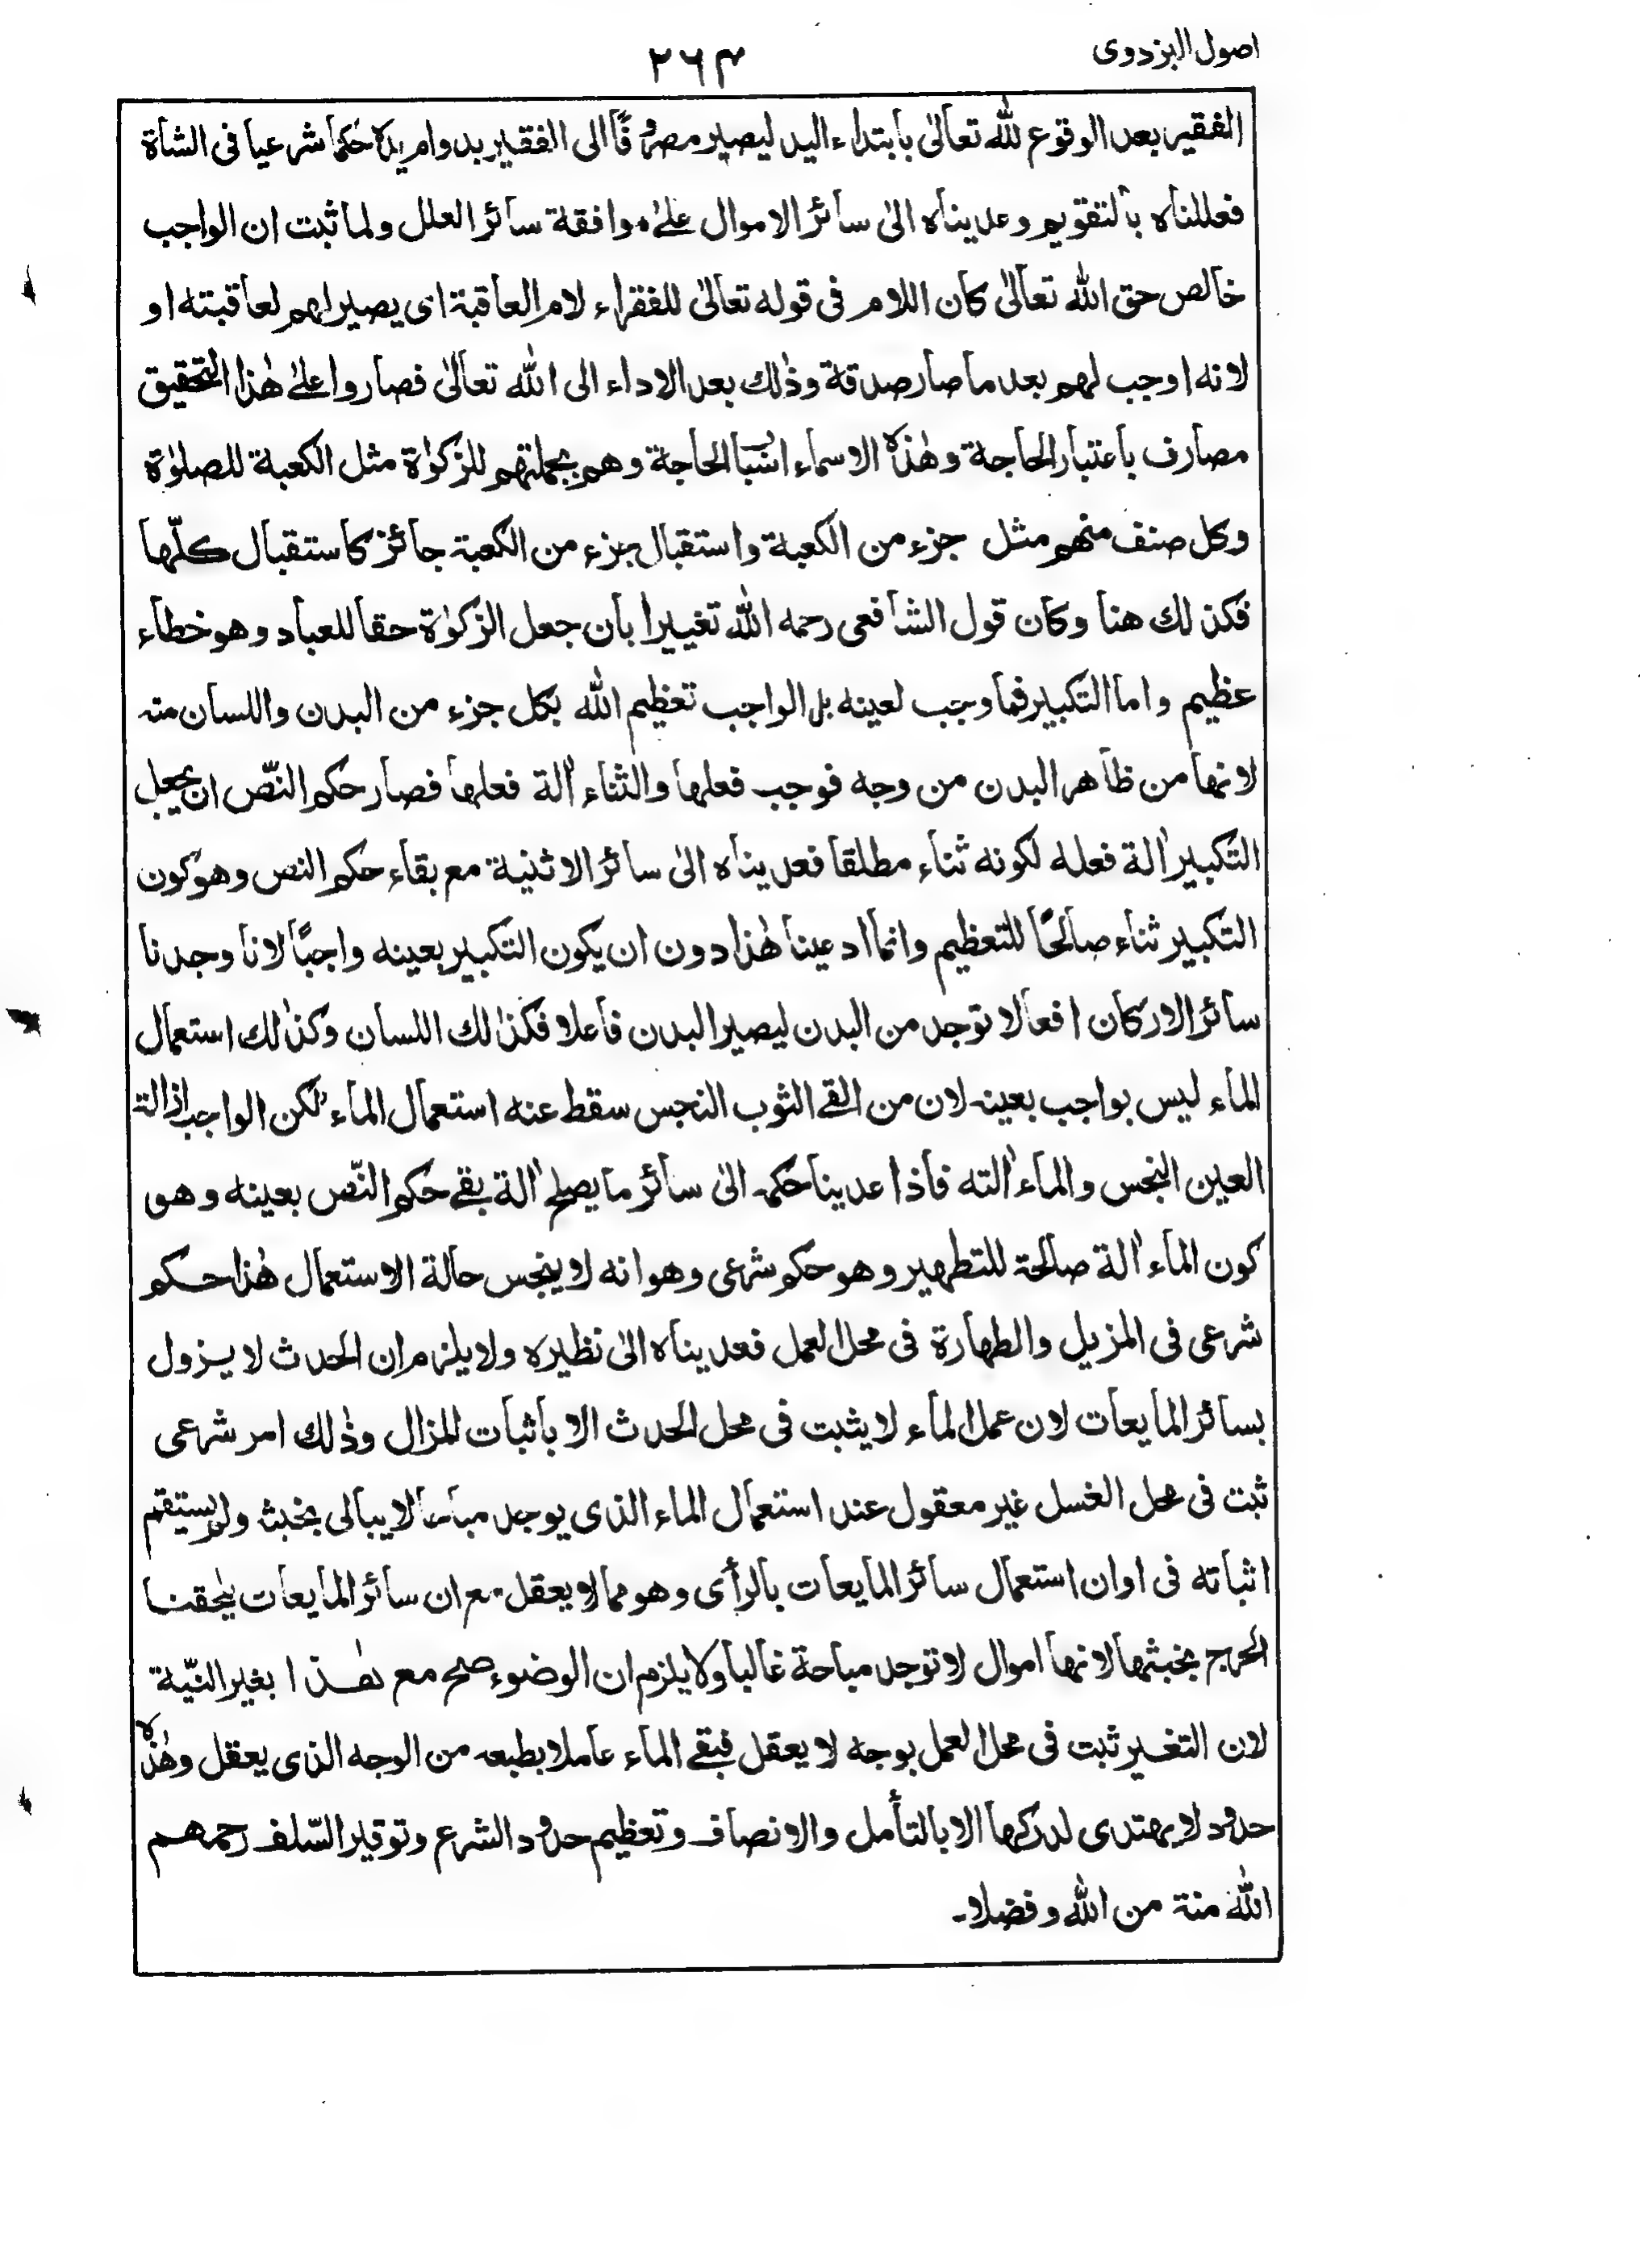 اصول البزدوی
۲۶۴
الفقیر بعد الوقوع للّٰه تعالیٰ بابتداء الید لیصیر مصروفًا الی الفقیر بدوام یدہ حکما شرعیا فی الشاة
فعللناہ بالتقویم وعدیناہ الیٰ سائر الاموال علیٰ موافقة سائر العلل ولما ثبت ان الواجب
خالص حق اللّٰه تعالیٰ کان اللام فی قوله تعالیٰ للفقراء لام العاقبة ای یصیر لهم لعاقبته او
لانه اوجب لهم بعد ما صار صدقة وذٰلك بعد الاداء الی اللّٰه تعالیٰ فصاروا علیٰ هٰذا التحقیق
مصارف باعتبار الحاجة وهٰذہ الاسماء اسباب الحاجة وهم بجملتهم للزکوٰة مثل الکعبة للصلوٰة
وکل صنف منهم مثل جزء من الکعبة واستقبال جزء من الکعبة جائز کاستقبال کلّها
فکذلك هنا وکان قول الشافعی رحمه اللّٰه تغییرا بان جعل الزکوٰة حقا للعباد وهو خطاء
عظیم واما التکبیر فما وجب لعینه بل الواجب تعظیم اللّٰه بکل جزء من البدن واللسان منه
لانها من ظاهر البدن من وجه فوجب فعلها والثناء اٰلة فعلها فصار حکم النصّ ان یجعل
التکبیر اٰلة فعله لکونه ثناء مطلقا فعدیناہ الیٰ سائر الاثنیة مع بقاء حکم النص وهو کون
التکبیر ثناء صالحًا للتعظیم وانما ادعینا هٰذا دون ان یکون التکبیر بعینه واجبًا لانا وجدنا
سائر الارکان افعالا توجد من البدن لیصیر البدن فاعلا فکذٰلك اللسان وکذٰلك استعمال
الماء لیس بواجب بعینه لان من القے الثوب النجس سقط عنه استعمال الماء لٰکن الواجب ازالة
العین النجس والماء اٰلته فاذا عدینا حکمه الیٰ سائر ما یصلح اٰلة بقے حکم النّص بعینه وهو
کون الماء اٰلة صالحة للتطهیر وهو حکم شرعی وهو انه لا ینجس حالة الاستعمال هٰذا حکم
شرعی فی المزیل والطهارة فی محل العمل فعدیناہ الیٰ نظیرہ ولا یلزم ان الحدث لا یزول
بسائر المایعات لان عمل الماء لا یثبت فی محل الحدث الا باثبات المزال وذٰلك امر شرعی
ثبت فی محل الغسل غیر معقول عند استعمال الماء الذی یوجد مباحا لا یبالی بخبثه ولم یستقم
اثباته فی اوان استعمال سائر المایعات بالرأی وهو مما لا یعقل مع ان سائر المایعات یلحقنا
الحرج بخبثها لانها اموال لا توجد مباحة غالبا ولا یلزم ان الوضوء صح مع هٰذا بغیر النیّة
لان التغیر ثبت فی محل العمل بوجه لا یعقل فبقے الماء عاملا بطبعه من الوجه الذی یعقل وهٰذہ
حدود لا یهتدی لدرکها الا بالتأمل والانصاف وتعظیم حدود الشرع وتوقیر السّلف رحمهم
اللّٰه منة من اللّٰه وفضلا۔